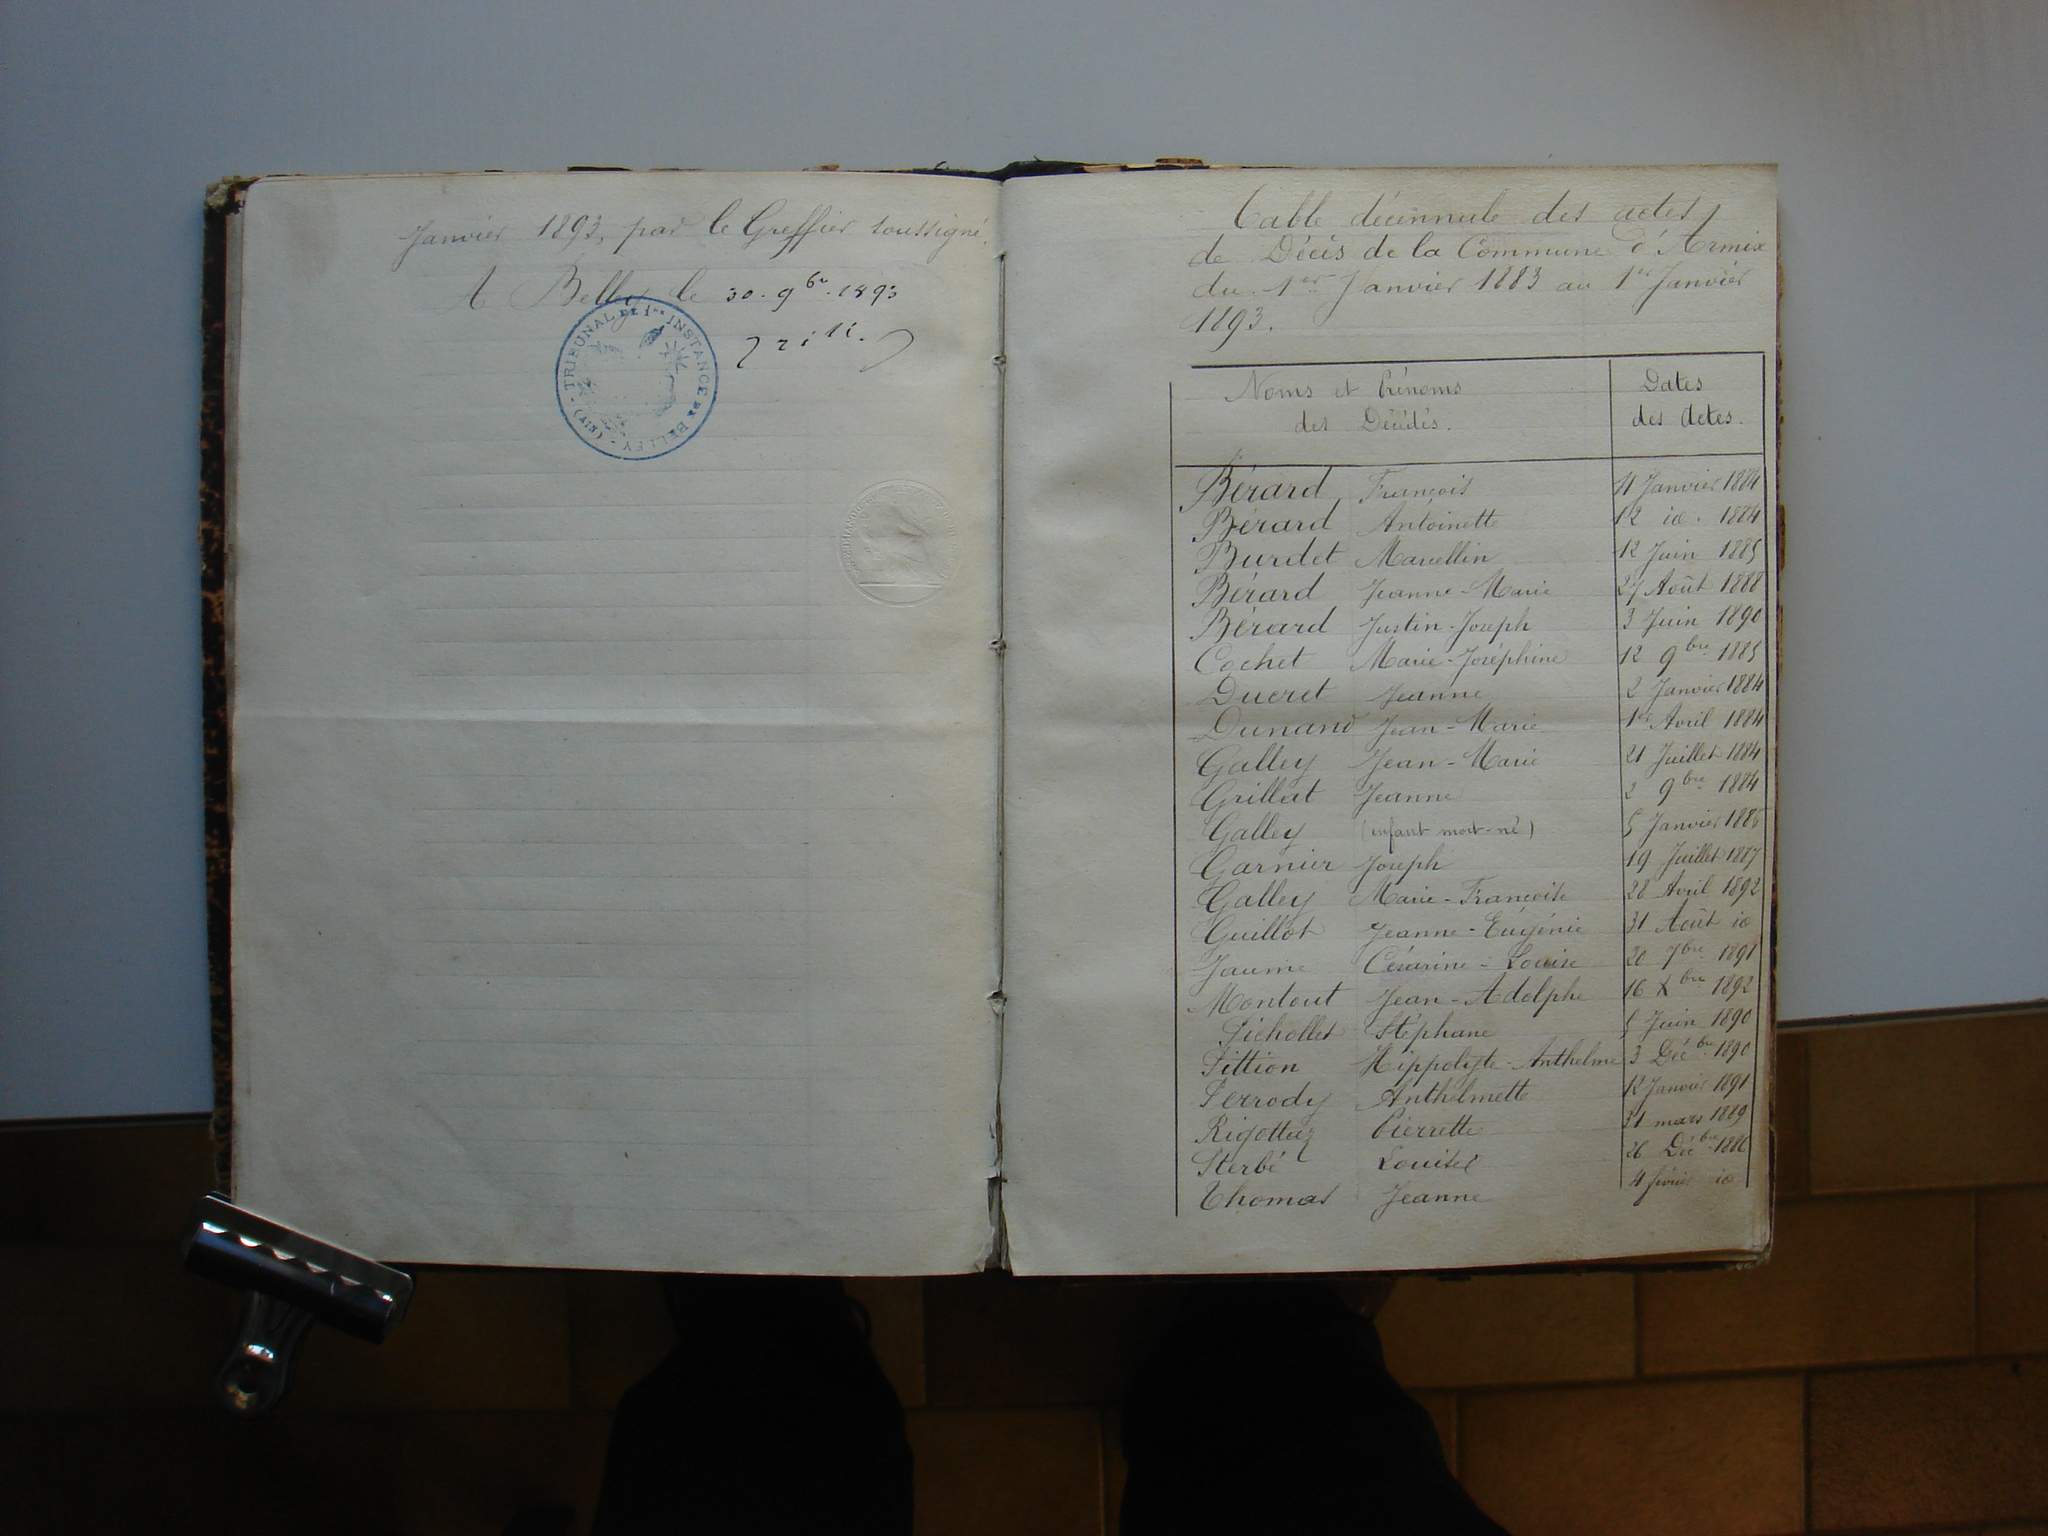 Janvier 1893, par le Greffier soussigné.
A Belley le 30. 9bre. 1893
TRIBUNAL DE 1re INSTANCE DE BELLEY - (AIN) -
Table décennale des actes
de Décès de la Commune d'Armix
du 1er Janvier 1883 au 1er Janvier
1893.
Noms et Prénoms Dates
des Décédés. des Actes.
Bérard François 11 Janvier 1884
Bérard Antoinette 12 id. 1884
Burdet Marcellin 12 Juin 1885
Bérard Jeanne-Marie 27 Août 1888
Bérard Justin-Joseph 3 Juin 1890
Cochet Marie-Joséphine 12 9bre 1885
Ducret Jeanne 2 Janvier 1884
Dunand Jean-Marie 1er Avril 1884
Galley Jean-Marie 21 Juillet 1884
Grillat Jeanne 2 9bre 1884
Galley (enfant mort-né) 5 Janvier
Garnier Joseph 19 Juillet 1887
Galley Marie-Françoise 28 Avril 1892
Guillot Jeanne-Eugénie 31 Août id
Jaume Césarine-Louise 20 7bre 1891
Montout Jean-Adolphe 16 Xbre 1892
Pichollet Stéphane 5 Juin 1890
Pittion Hippolyte-Anthelme 3 Décbre 1890
Perrody Anthelmette 12 Janvier 1891
Rigottaz Pierrette 31 mars 1889
Sterbé Louise 26 Décbre 1886
Thomas Jeanne 4 février id